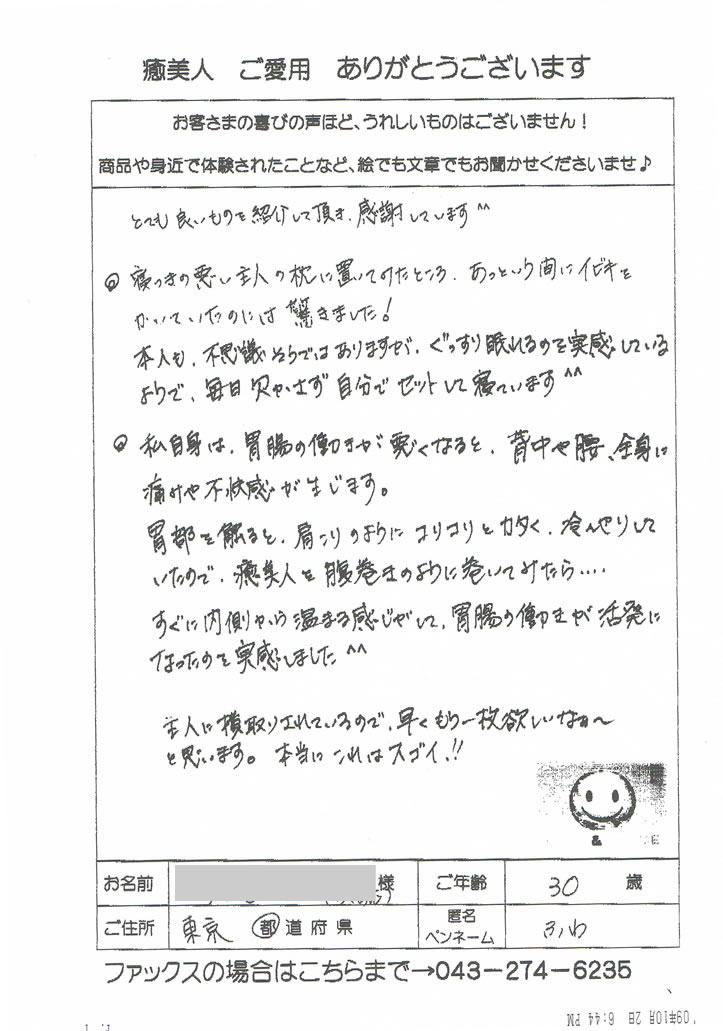 癒美人　ご愛用　ありがとうございます
お客さまの喜びの声ほど、うれしいものはございません！
商品や身近で体験されたことなど、絵でも文章でもお聞かせくださいませ♪
とても良いものを紹介して頂き、感謝しています^^
◎ 寝つきの悪い主人の枕に置いてみたところ、あっという間にイビキを
かいていたのには驚きました！
本人も、不思議そうではありますが、ぐっすり眠れるのを実感している
ようで、毎日欠かさず自分でセットして寝ています^^
◎ 私自身は、胃腸の働きが悪くなると、背中や腰、全身に
痛みや不快感が生じます。
胃部を触ると、肩こりのようにコリコリとカタく、冷んやりして
いたので、癒美人を腹巻きのように巻いてみたら‥‥
すぐに内側から温まる感じがして、胃腸の働きが活発に
なったのを実感しました^^
主人に横取りされているので、早くもう一枚欲しいなぁ〜
と思います。本当にこれはスゴイ！！
&
お名前 様 ご年齢 30 歳
ご住所 東京 都道府県 匿名ペンネーム ふわ
ファックスの場合はこちらまで→043-274-6235
'09年10月2日 6:44 PM